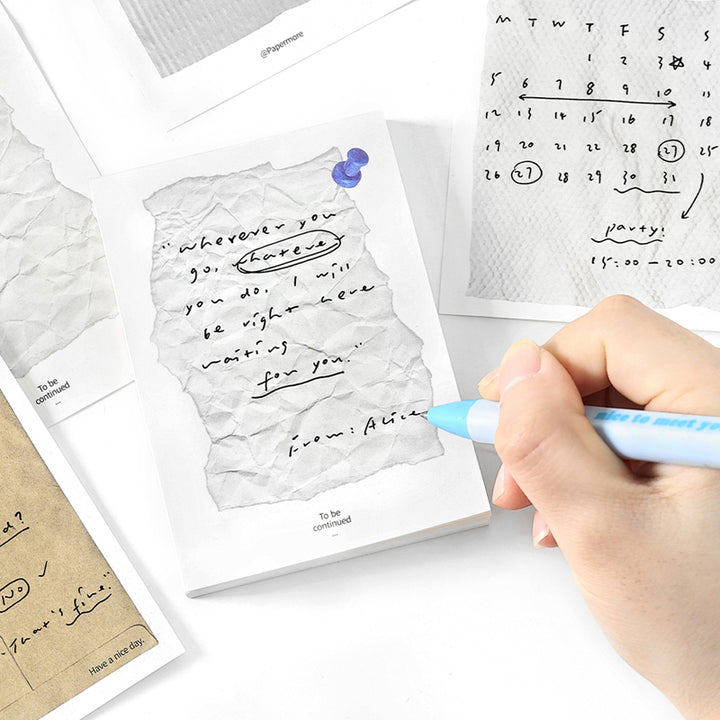 @Papermore
M T W T F S S
1 2 3 4
5 6 7 8 9 10 11
12 13 14 15 16 17 18
19 20 21 22 28 27 25
26 27 28 29 30 31
party!
15:00-20:00
"wherever you
go, whatever
you do, I will
be right here
waiting
for you."
from: Alice
To be
continued
To be
continued
nice to meet you
d?
NO
That's fine."
Have a nice day.